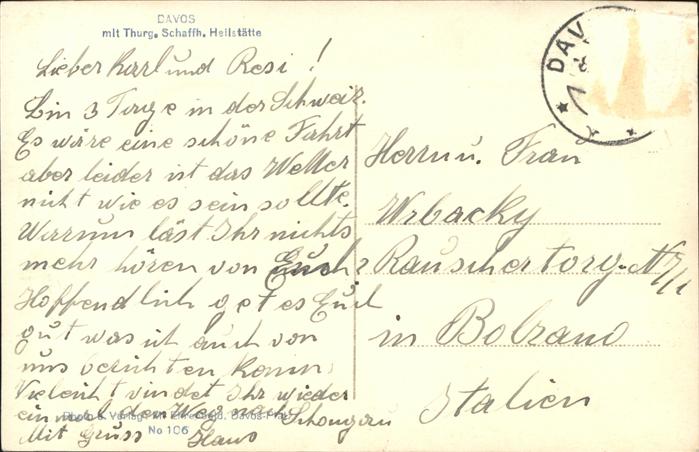 DAVOS
mit Thurg. Schaffh. Heilstätte
Lieber Karl und Resi !
Bin 3 Tage in der Schweiz.
Es wäre eine schöne Fahrt
aber leider ist das Wetter
nicht wie es sein sollte.
Warrum läst Ihr nichts
mehr hören von Euch?
Hoffendlich get es Euch
gut was ich auch von
uns berichten kann
Vieleicht vindet Ihr wieder
einmal den Weg nach Schongau
Mit Gruss Hans
Photo & Verlag Davos-Platz
No 106
DAV
Herrn u. Frau
Wrbacky
Rauschertorg.
in Bolzano
Italien